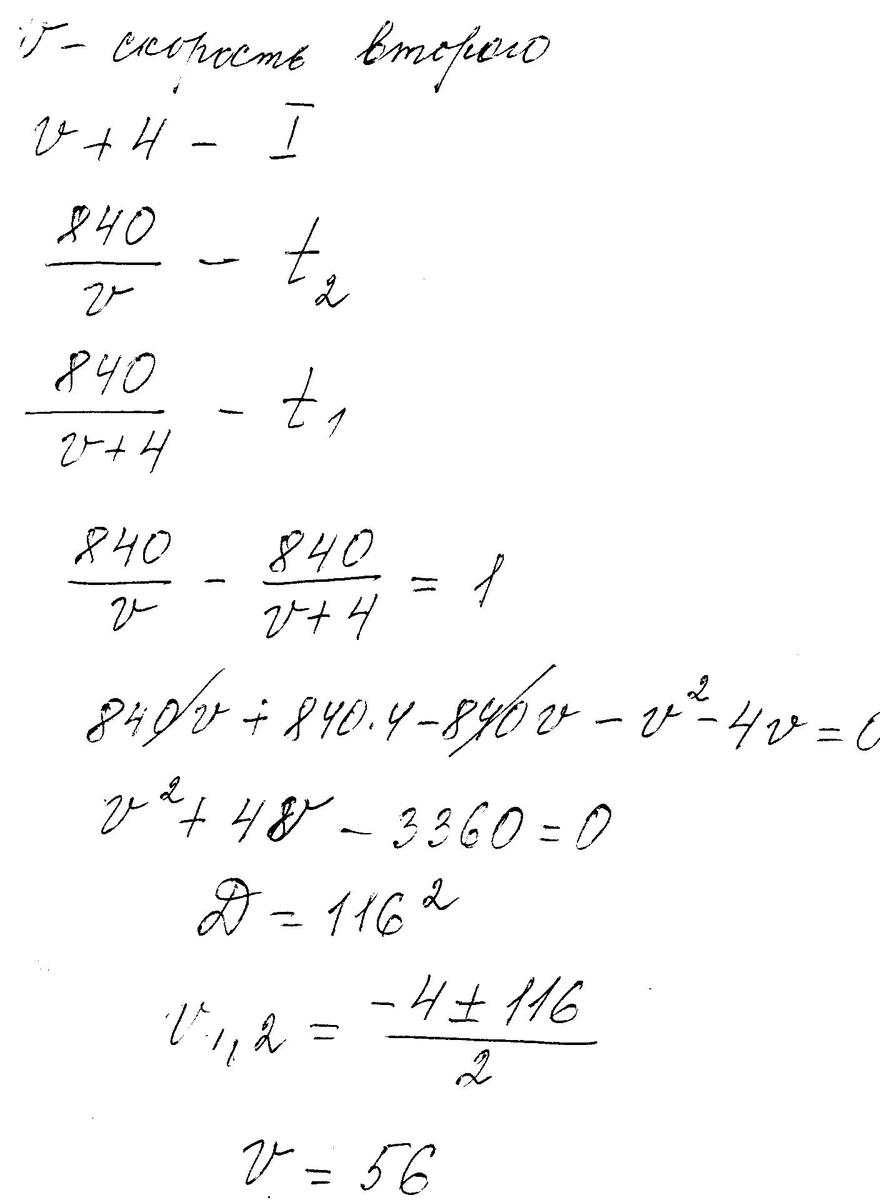 v - скорость второго
v + 4 - I
840/v - t₂
840/(v+4) - t₁
840/v - 840/(v+4) = 1
840v + 840·4 - 840v - v² - 4v = 0
v² + 4v - 3360 = 0
D = 116²
v₁,₂ = (-4 ± 116)/2
v = 56